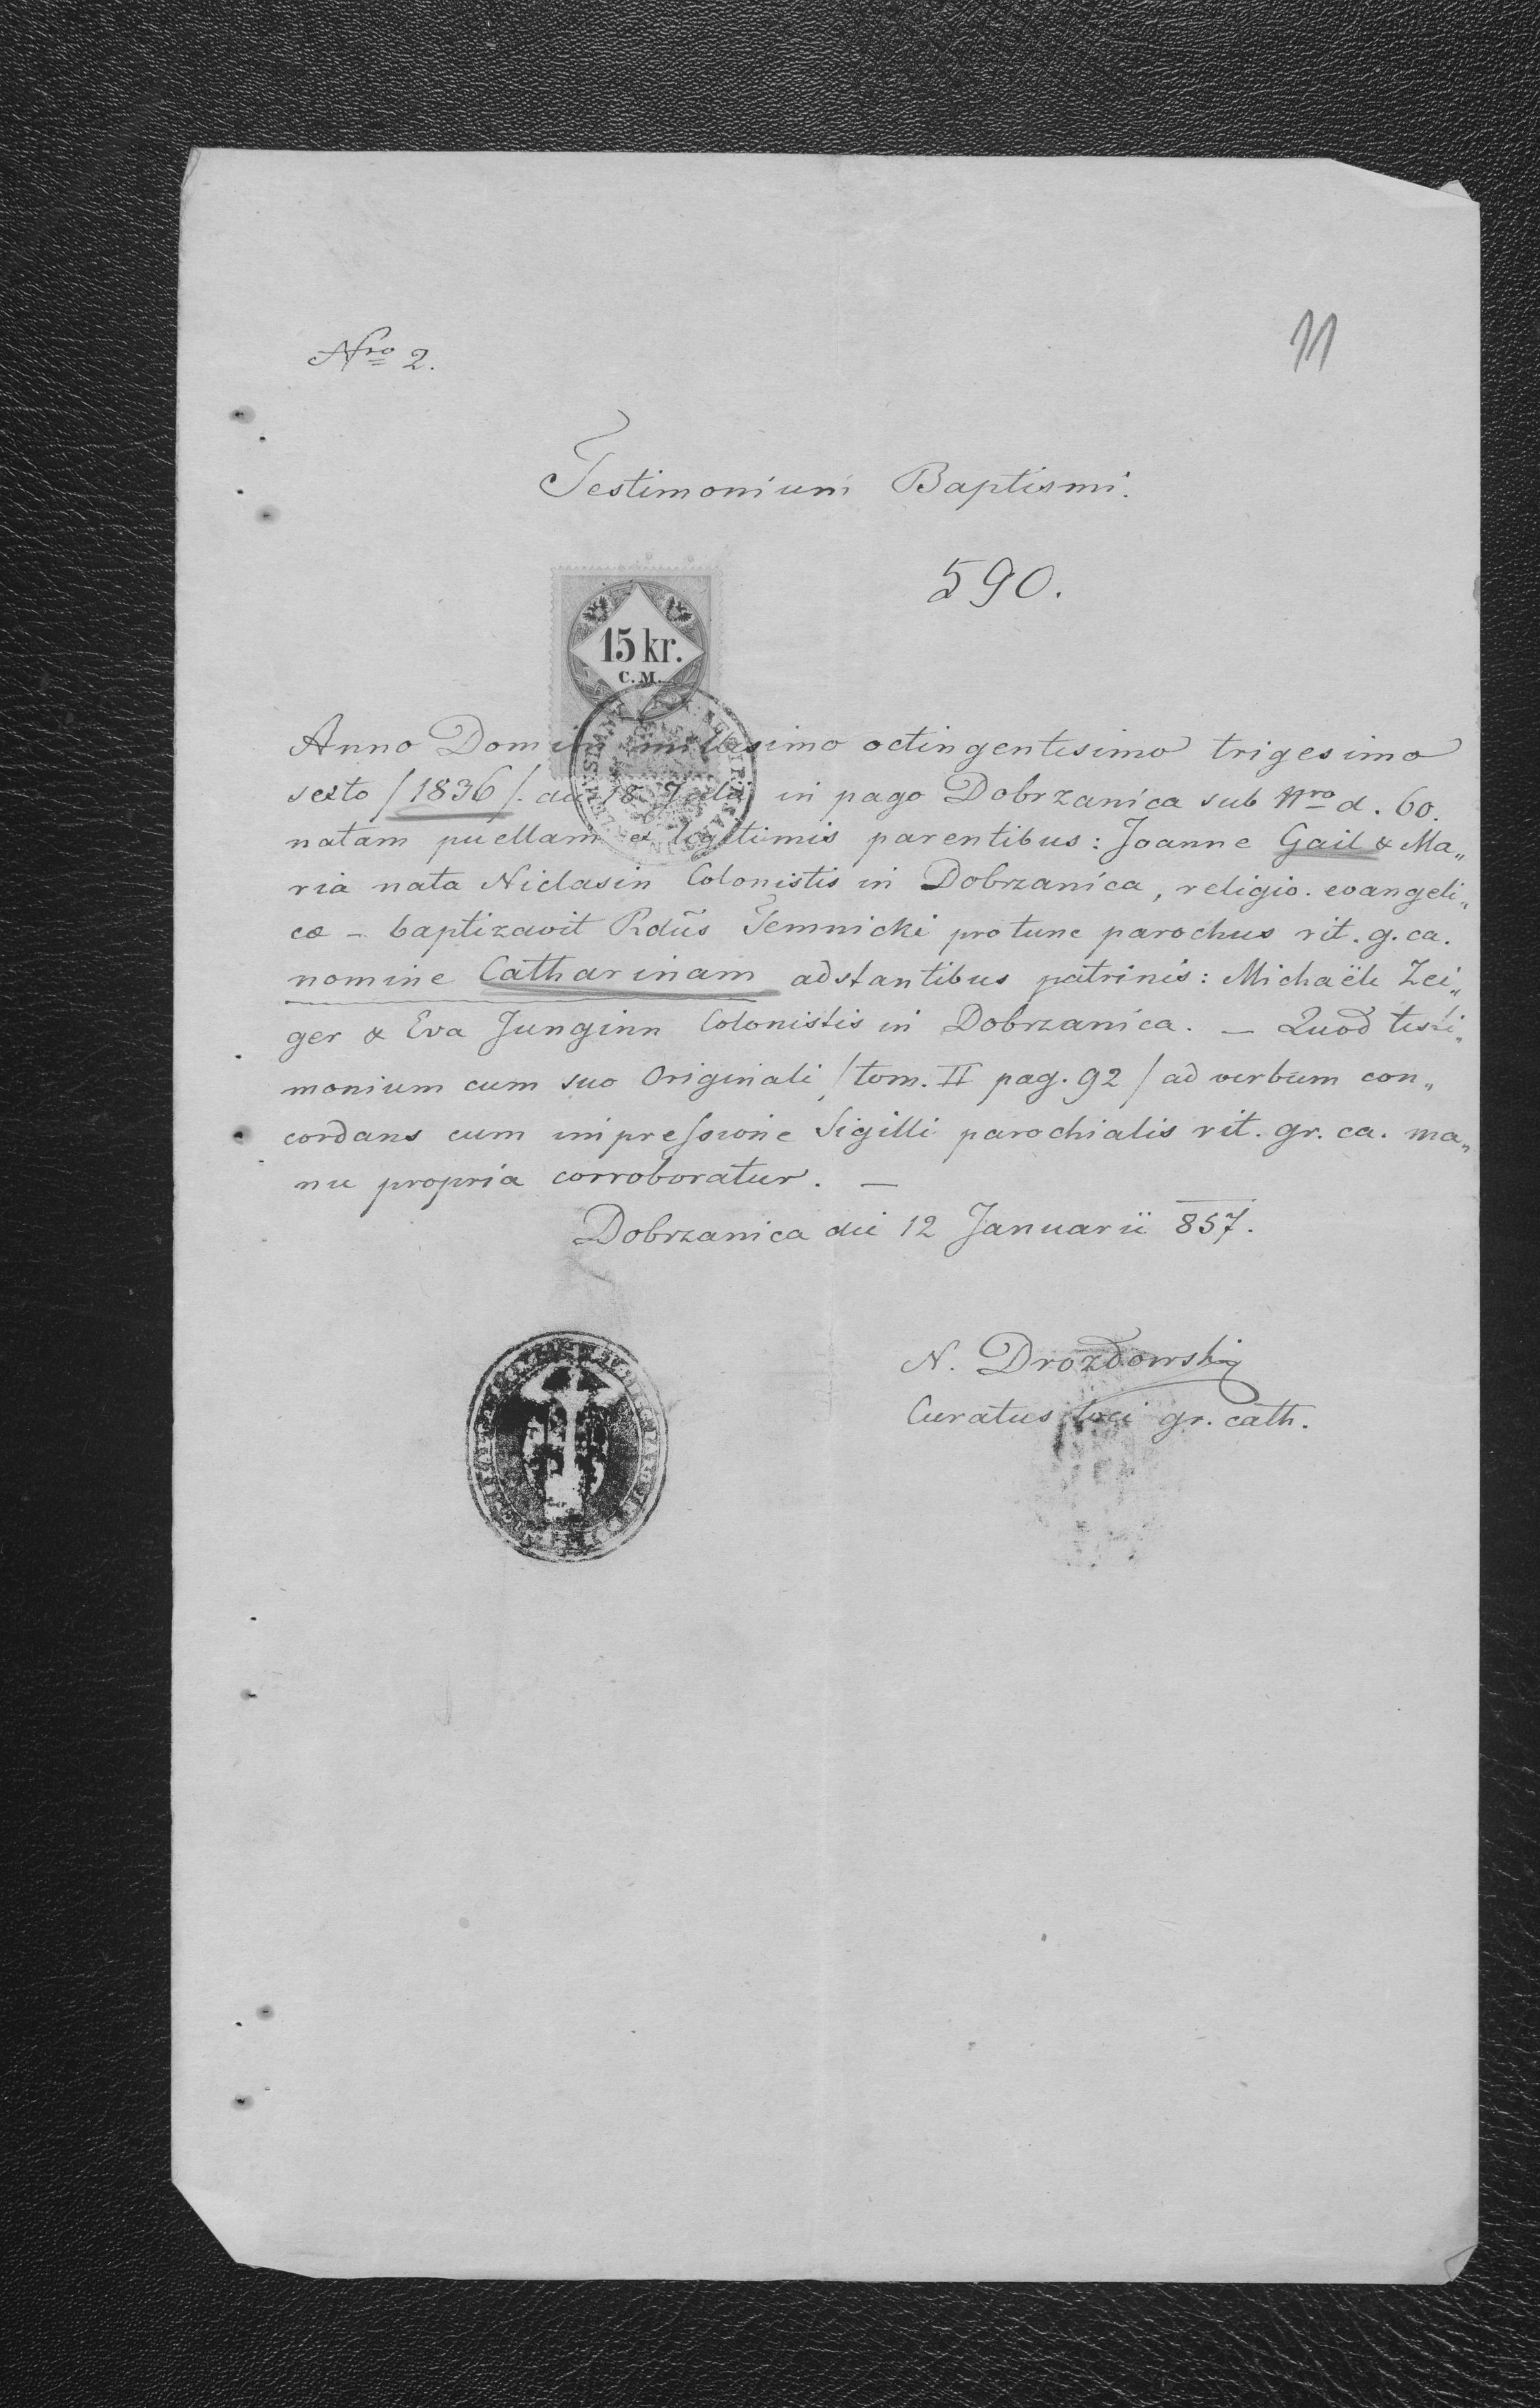 Nro 2.
11
Testimonium Baptismi.
590.
15 kr.
C.M.
Anno Domini millesimo octingentesimo trigesimo
sexto /1836/. die 18 Julii in pago Dobrzanica sub Nro d. 60.
natam puellam ex legitimis parentibus: Joanne Gail & Ma„
ria nata Niclasin Colonistis in Dobrzanica, religio. evangeli„
cæ – baptizavit Rdus̃ Temnicki pro tunc parochus rit. g. ca.
nomine Catharinam adstantibus patrinis: Michaële Zei„
ger & Eva Junginn Colonistis in Dobrzanica. – Quod testi„
monium cum suo Originali /tom. II pag. 92/ ad verbum con„
cordans cum impressione Sigilli parochialis rit. gr. ca. ma„
nu propria corroboratur. –
Dobrzanica die 12 Januarii 857.
N. Drozdowski
Curatus loci gr. cath.